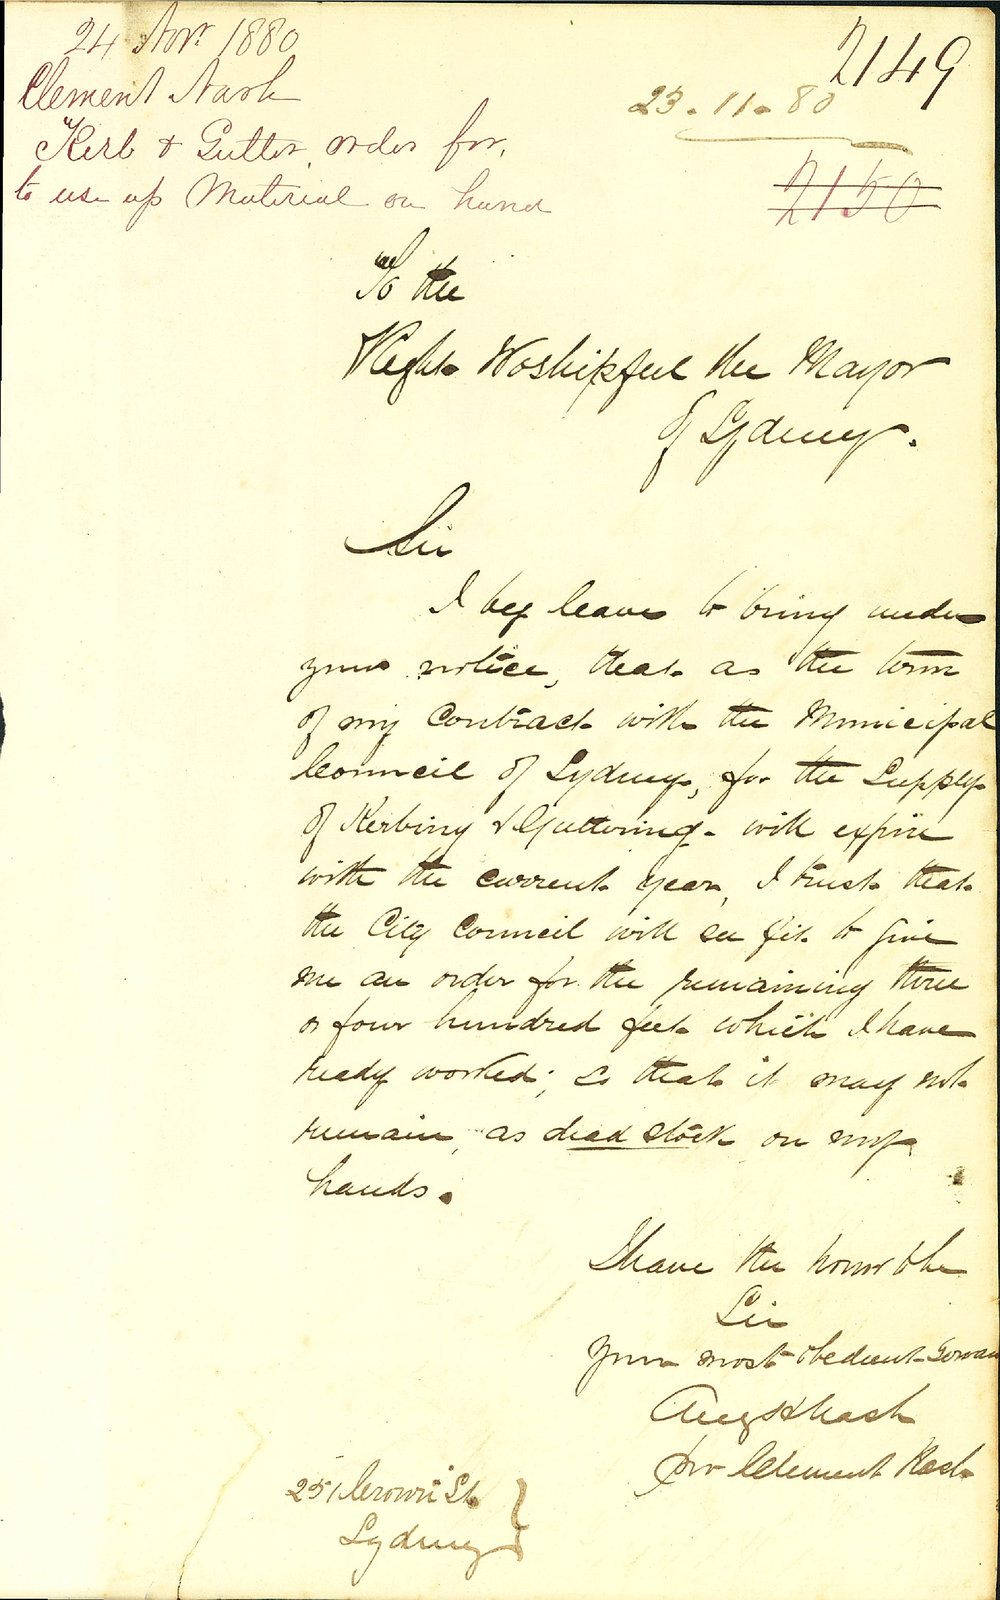 24 Novr 1880
Clement Nash
Kerb & Gutter, order for,
to use up Material on hand
2149
23-11-80
2150
To the
Right Woshipful the Mayor
of Sydney.
Sir
I beg leave to bring under
your notice, that as the term
of my Contract with the Municipal
Council of Sydney, for the Supply
of Kerbing & Guttering - will expire
with the current year, I trust that
the City Council will see fit to give
me an order for the remaining three
or four hundred feet which I have
ready worked; so that it may not
remain, as dead stock on my
hands.
I have the honor to be
Sir
Your most obedient Servan
Aug H Nash
pro Clement Nash
251 Crown St.
Sydney